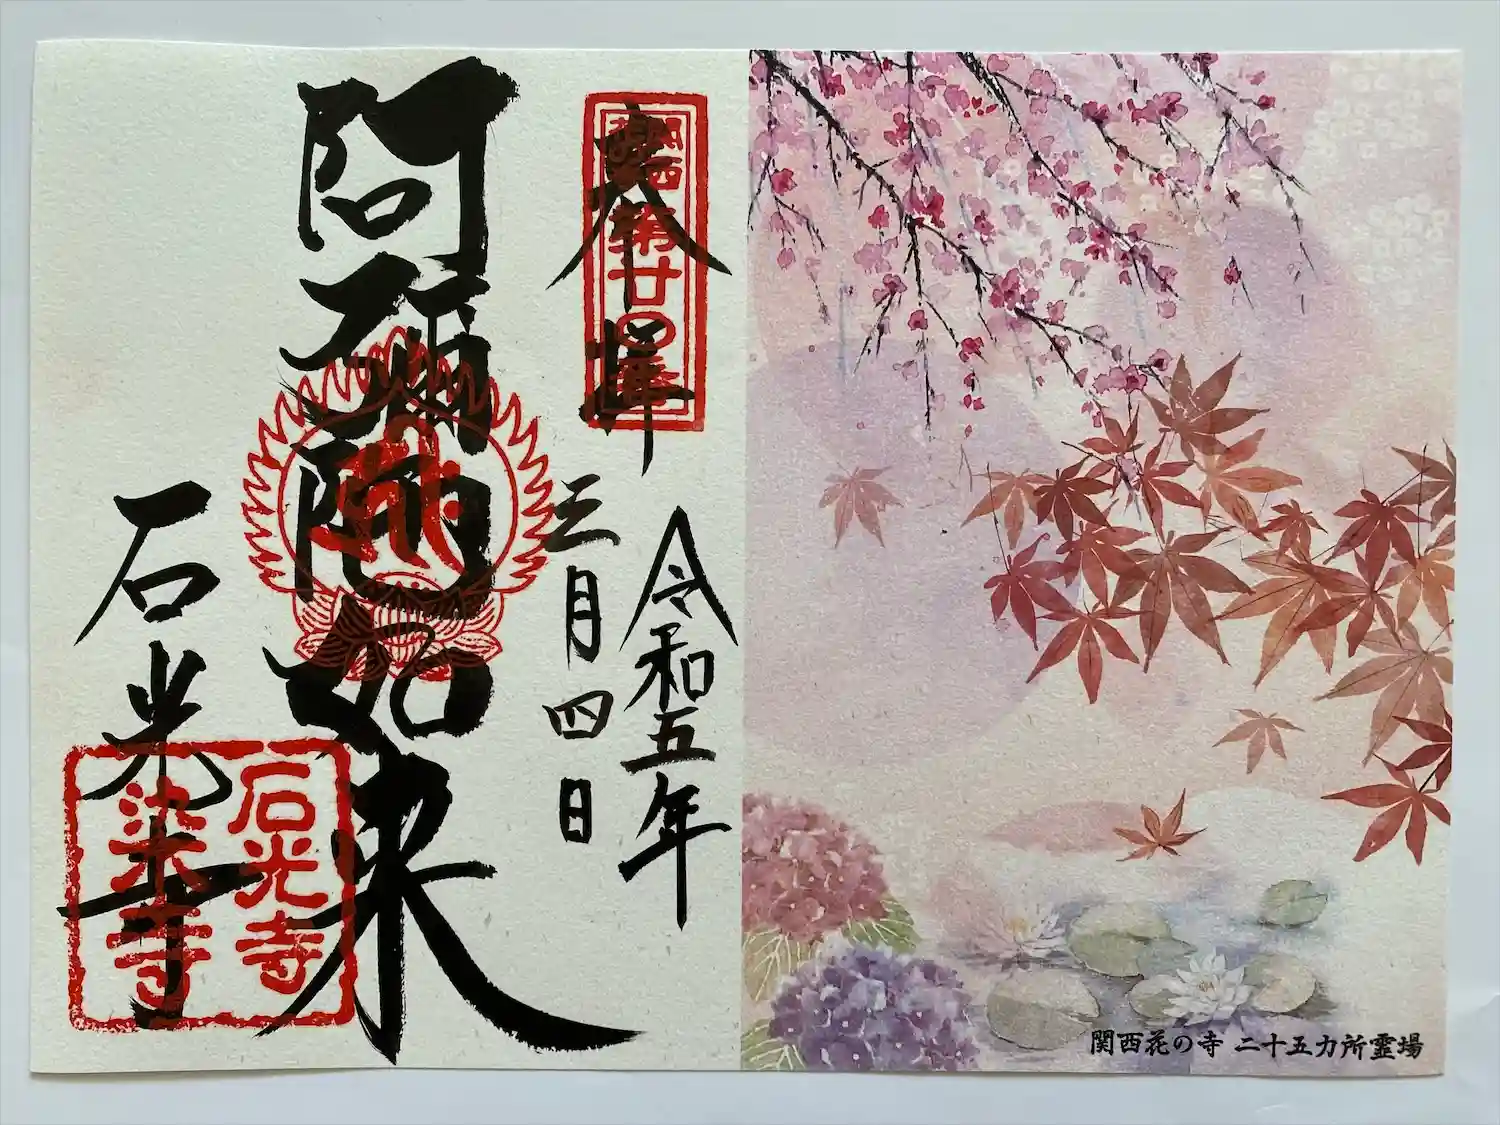 関西花の寺 二十五カ所霊場
奉拝
第廿〇番
令和五年
三月四日
阿彌陀如来
石光寺
石光寺
染寺